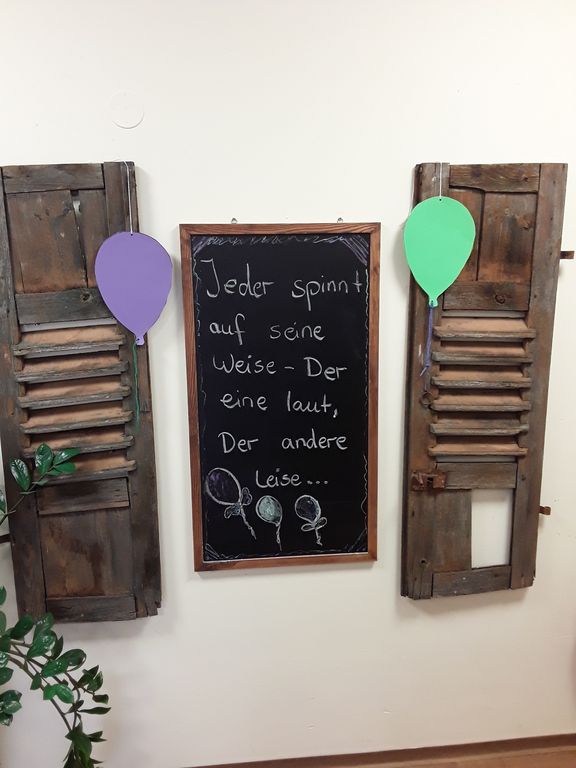 Jeder spinnt
auf seine
Weise - Der
eine laut,
Der andere
Leise...